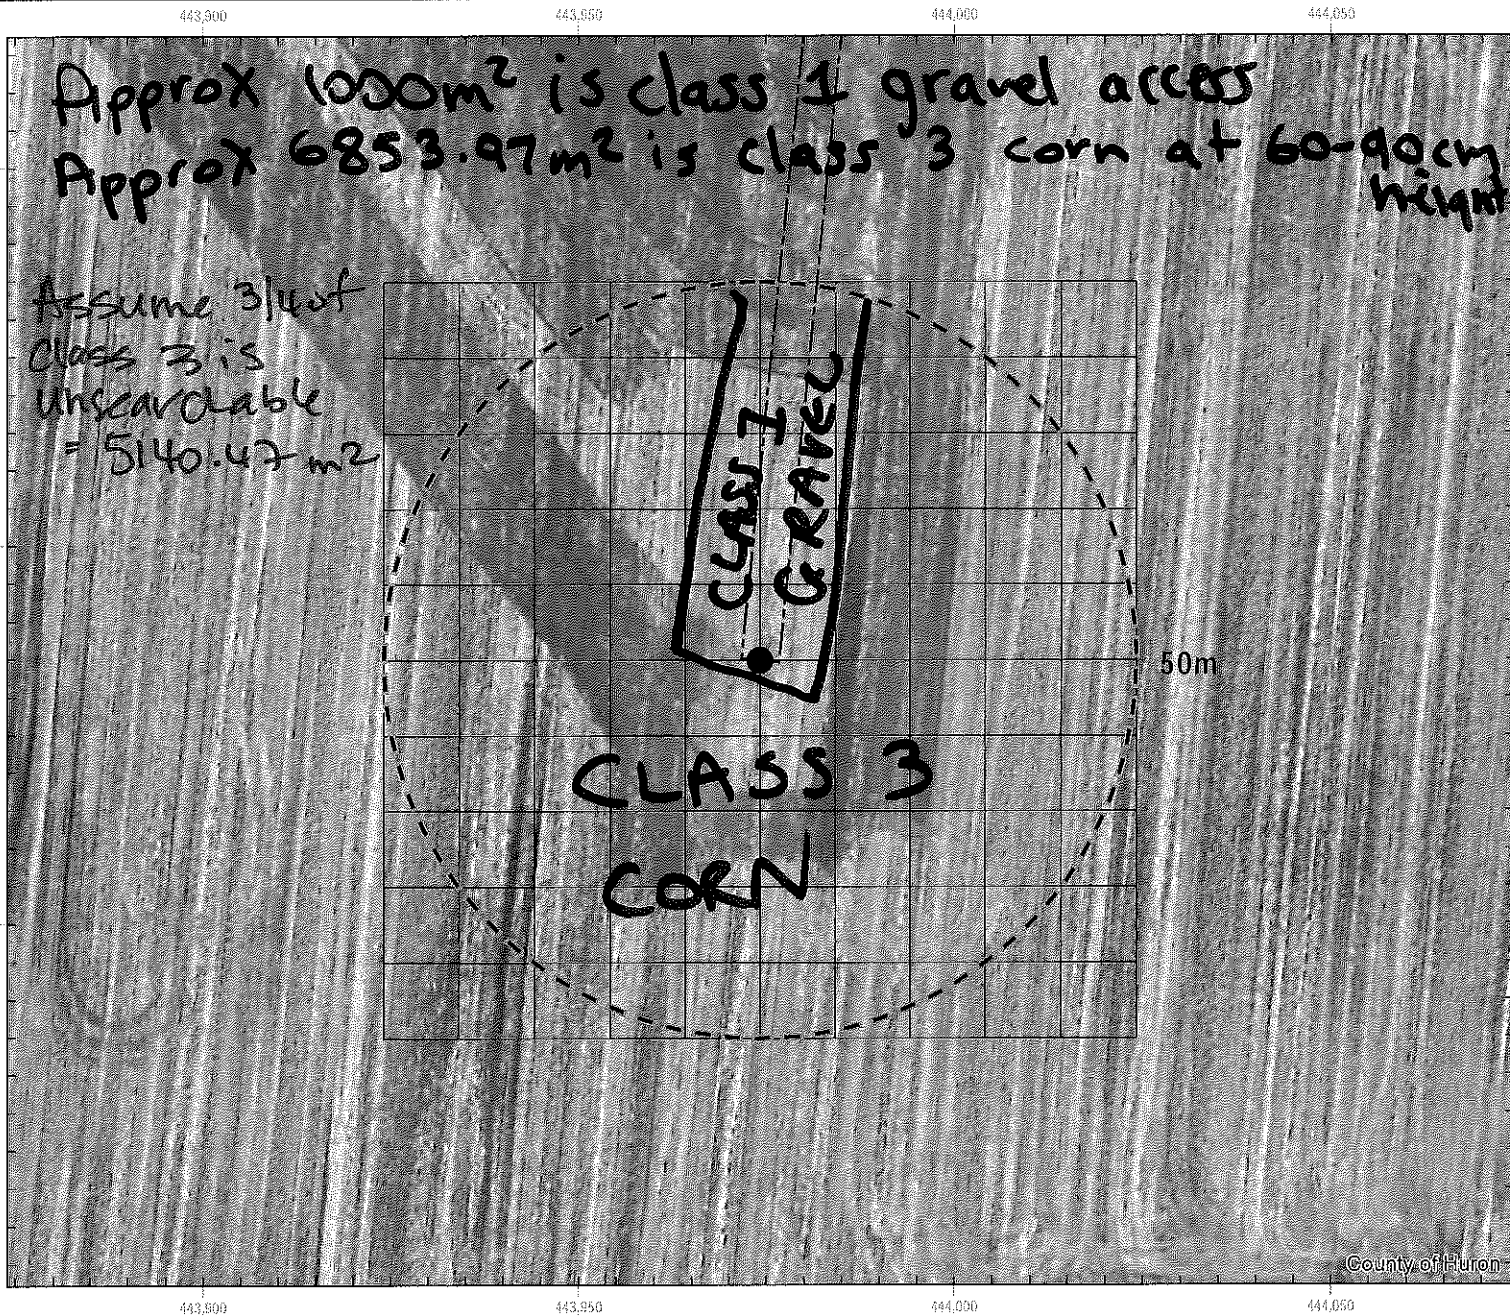 443,900 443,950 444,000 444,050
Approx 1000m² is class 1 gravel access
Approx 6853.97m² is class 3 corn at 60-90cm
height
Assume 3/4 of
Class 3 is
Unsearchable
= 5140.47 m2
CLASS 1
GRAVEL
50m
CLASS 3
CORN
County of Huron
443,900 443,950 444,000 444,050